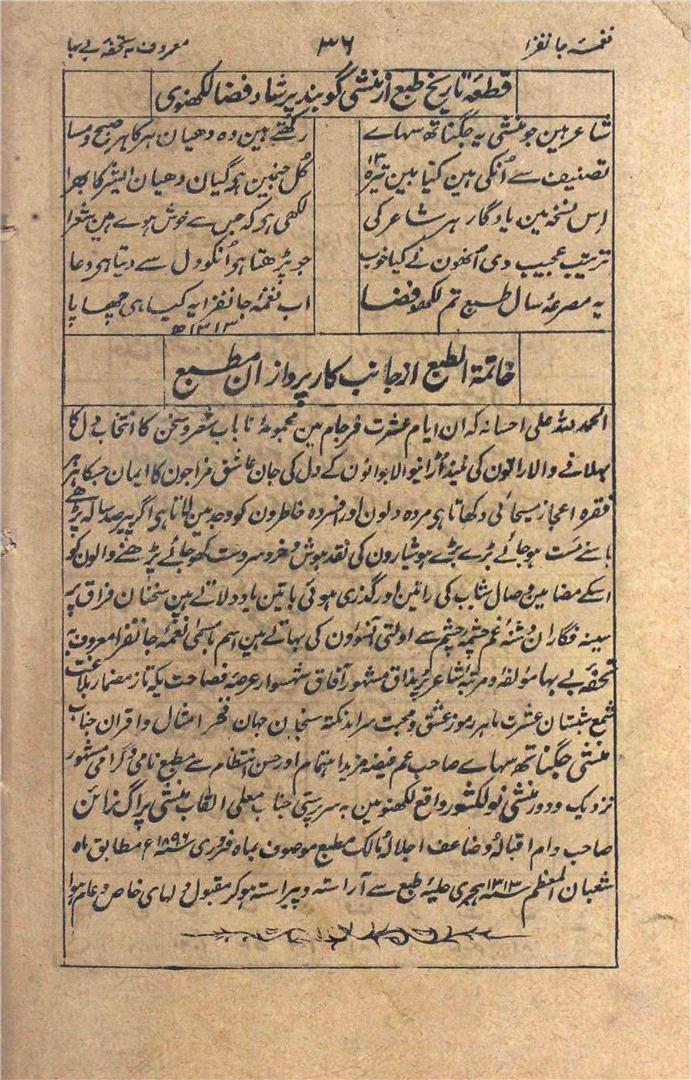 نغمۂ جانفزا ۳۶ معروف بہ تحفۂ بے بہا
قطعۂ تاریخ طبع از منشی گوبند پرشاد فضا لکھنوی
شاعر ہین جو منشی یہ جگناتھ سہاے رکھتے ہین وہ دھیان ہر کا ہر صبح و مسا
تصنیف سے اُنکی ہین کتابین تیرہ ۱۳ کُل جنمین ہو گیان دھیان الیشر کا بھرا
اِس نسخہ مین یادگار ہر شاعر کی لکھی ہو کہ جس سے خوش ہوے ہین شعرا
ترتیب عجیب دی اُنھون نے کیا خوب جو پڑھتا ہو اُنکو دل سے دیتا ہو دعا
یہ مصرعۂ سال طبع تم لکھو فضا اب نغمۂ جانفزا یہ کیسا ہی چھپا پا
۱۳۱۳ھ
خاتمۃ الطبع از جانب کارپردازان مطبع
الحمد للہ علی احسانہ کہ ان ایام عشرت فرجام مین مجموعۂ نایاب شعر و سخن کا انتخاب دل کا
بہلانے والا راتون کی نیند اُڑانیوالا جوانون کے دل کی جان عاشق مزاجون کا ایمان جسکا ہر
فقرہ اعجاز مسیحائی دکھاتا ہی مردہ دلون اور افسردہ خاطرون کو وجد مین لاتا ہی اگر پیر صد سالہ پڑھے
یا سنے مست ہو جائے بڑے بڑے ہوشیارون کی نقد ہوش و خرد سروست کھو جائے پڑھنے والون کو
اسکے مضامین وصال شباب کی راتین اور گذری ہوئی باتین یاد دلاتے ہین سخنان فراق پر
سینہ فگاران دشنۂ غم چشمہ چشم سے اولتی آنسوؤن کی بہاتے ہین اسم بامسمی نغمۂ جانفزا معروف بہ
تحفۂ بے بہا مؤلفہ و مرتبۂ شاعر پُر مذاق مشہور آفاق شہسوار عرصۂ فصاحت یکہ تاز مضمار بلاغت
شمع شبستان عشرت ماہر رموز عشق و محبت سرآمد نکتہ سنجان جہان فخر امثال و اقران جناب
منشی جگناتھ سہاے صاحب عم فیضہ مزید اہتمام اور حسن انتظام سے مطبع نامی و گرامی مشہور
نزدیک و دور منشی نولکشور واقع لکھنؤ مین بہ سرپرستی جناب معلی القاب منشی پراگ نراین
صاحب دام اقبالہ وضاعف اجلالہ مالک مطبع موصوف بماہ فروری سنہ ۱۸۹۶ ع مطابق ماہ
شعبان المعظم سنہ ۱۳۱۳ ہجری حلیۂ طبع سے آراستہ و پیراستہ ہو کر مقبول دلہای خاص و عام ہوا